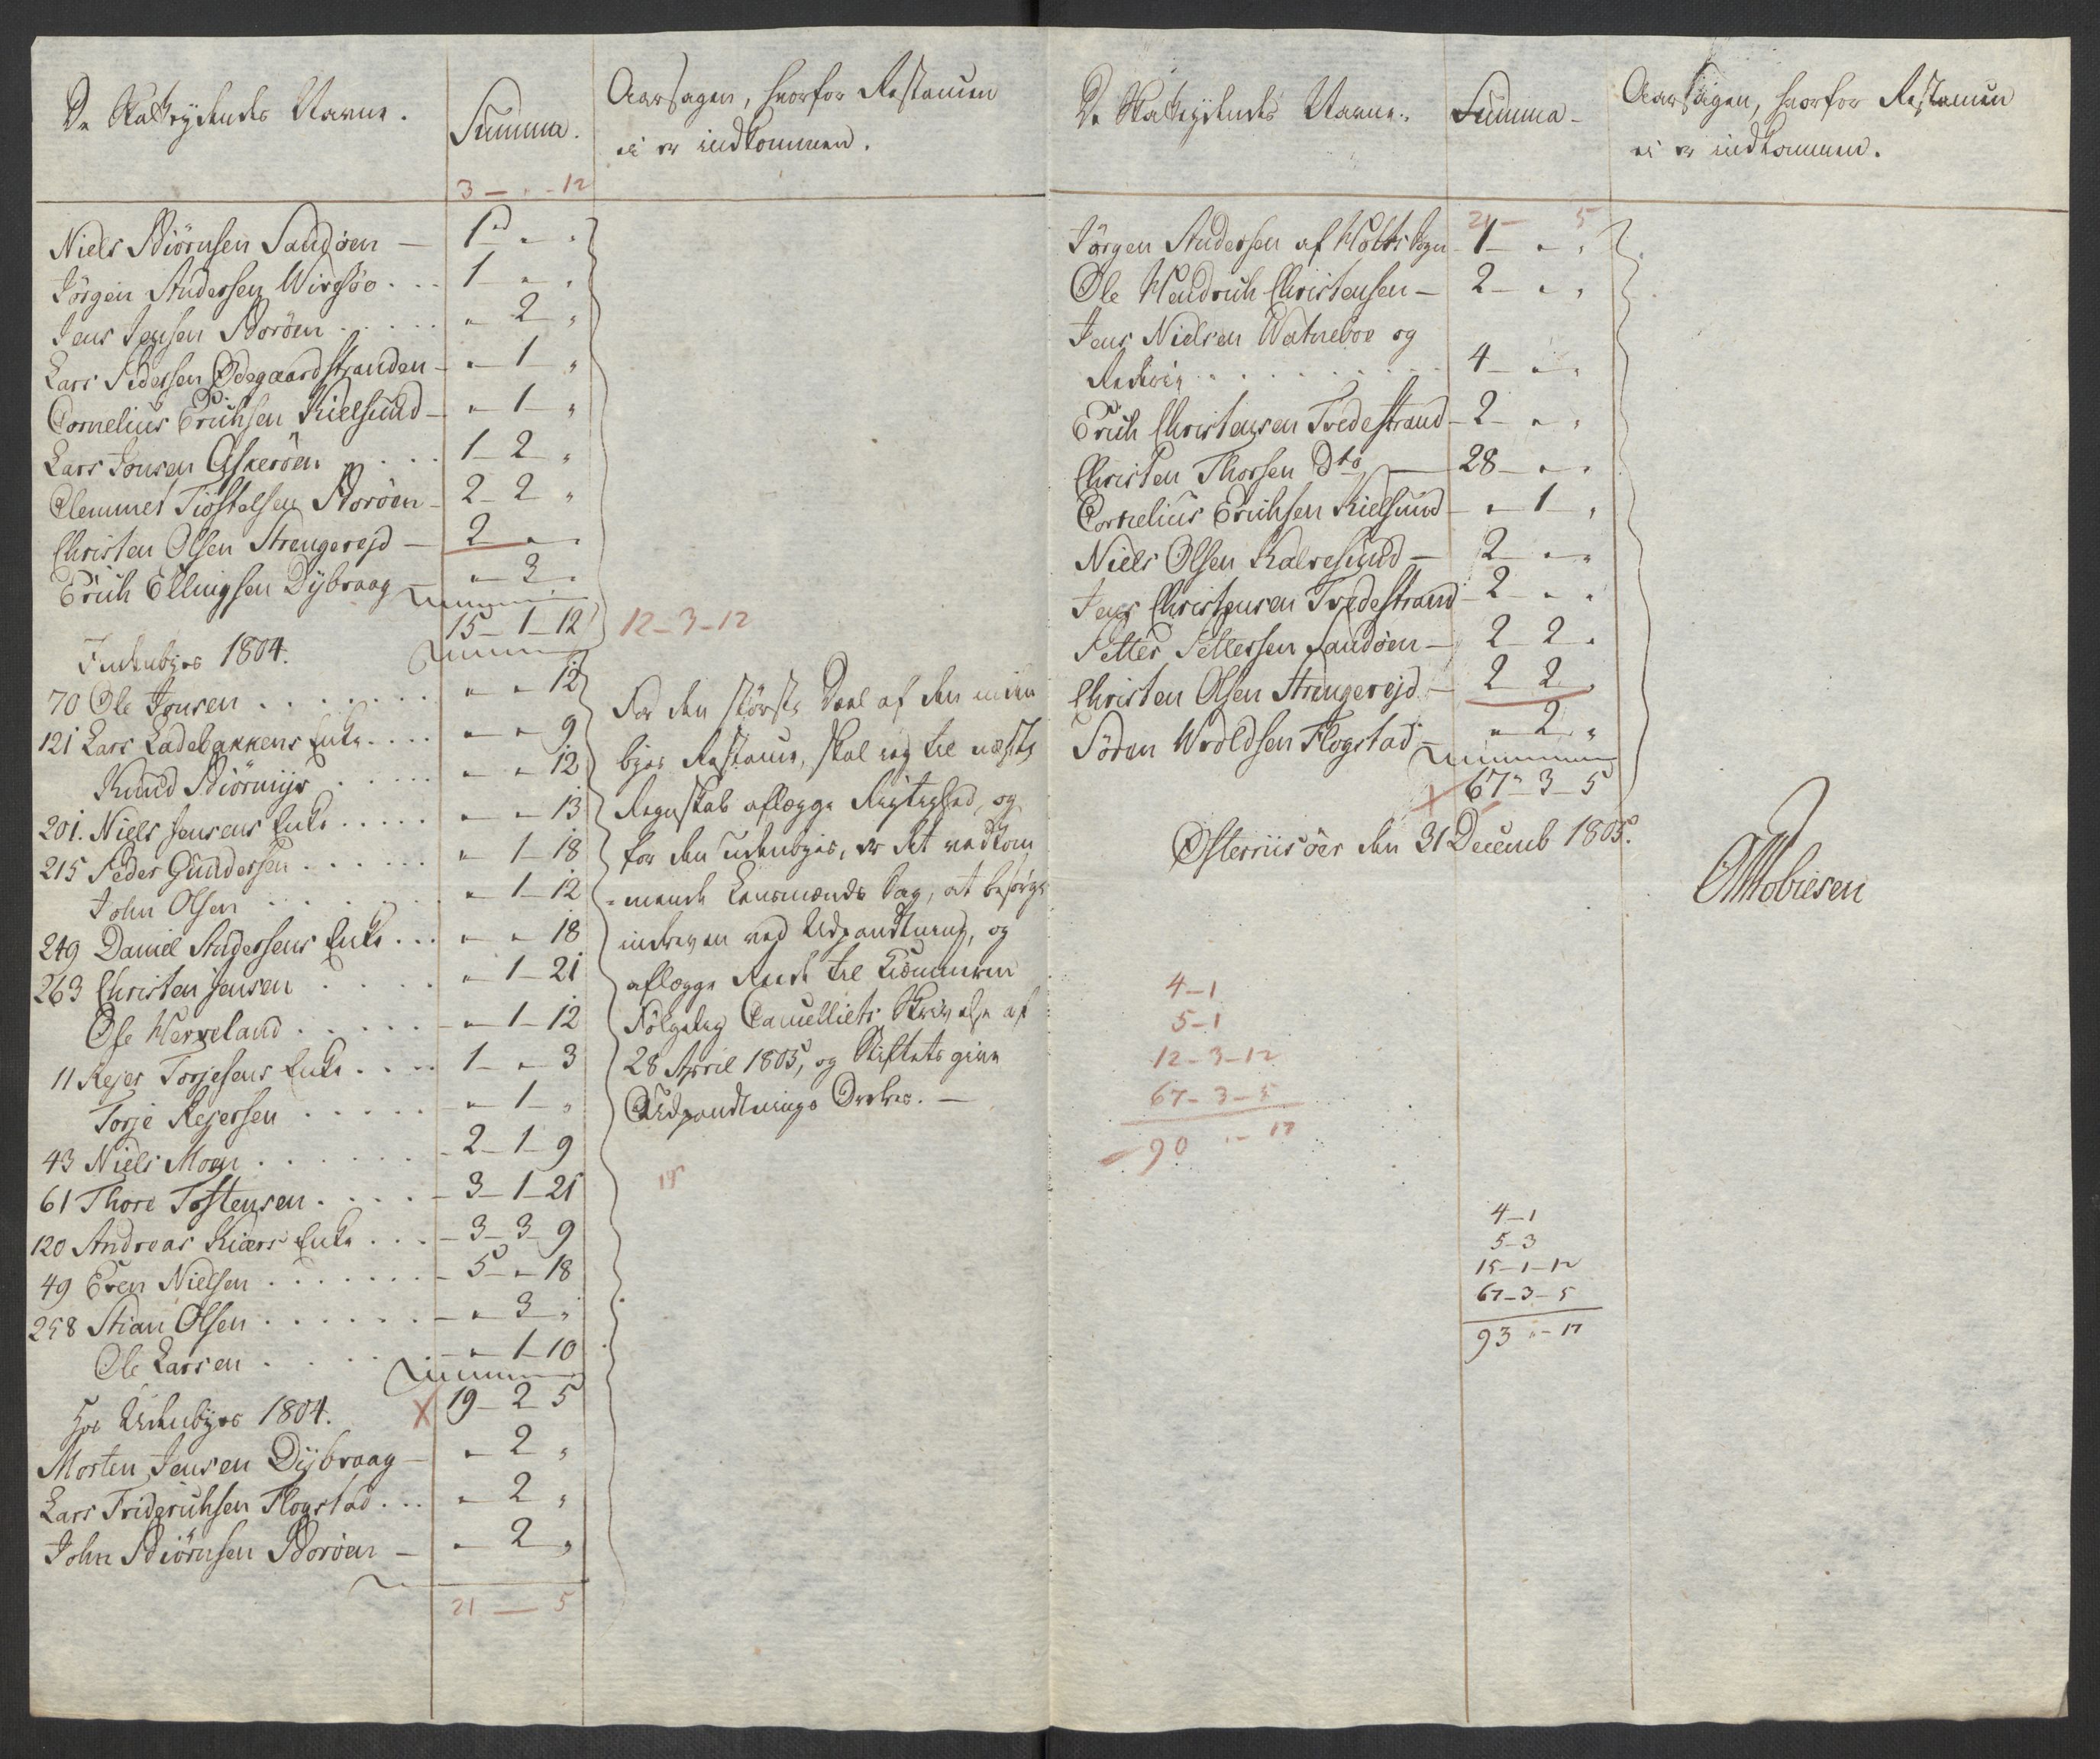 De Skatteydendes Navne.
Summa.
Aarsagen, hvorfor Restancen
ei er indkommen.
3 – „ – 12
Niels Biörnsen Sandöen – 1 „ „
Jörgen Andersen Wirgsöe . . . 1 „ „
Jens Jensen Boröen . . . . . „ 2 „
Lars Pedersen Ödegaardstranden – „ 1 „
Cornelius Erichsen Kielsund – „ 1 „
Lars Jonsen Askeröen . . . 1 2 „
Clemmet Tiöstelsen Boröen – 2 2 „
Christen Olsen Strengerejd – 2 „ „
Erich Ellingsen Dybvaag – „ 3 „
15 – 1 – 12
12 – 3 – 12
Indenbyes 1804.
70 Ole Jonsen . . . . . . . „ „ 12
121 Lars Ladebakkens Enke . . . . „ „ 9
Knud Biörnmyr . . . . . „ „ 12
201. Niels Jensens Enke . . . . . „ „ 13
215 Peder Gundersen . . . . . . „ 1 – 18
John Olsen . . . . . . . „ 1 – 12
249 Daniel Andersens Enke . . . „ „ 18
263 Christen Jensen . . . . . „ 1 – 21
Ose Herveland . . . . . . „ 1 – 12
11 Rejer Torjesens Enke . . . . 1 – „ 3
Torje Rejersen . . . . . „ 1 – „
43 Niels Moen . . . . . . . 2 – 1 – 9
61 Thore Tostensen . . . . – 3 – 1 – 21
120 Andreas Kiærs Enke . . . – 3 – 3 – 9
49 Even Nielsen . . . . . . . – 5 – „ 18
258 Stian Olsen . . . . . . – „ 3 – „
Ole Larsen . . . . . . – „ 1 – 10
X 19 – 2 – 5
For den störste Deel af den inden
byes Restance, skal jeg til næste
Regnskab aflægge Rigtighed, og
for den udenbyes, er det vedkom
=mende Lensmænds Sag, at besörge
inddreven ved Udpantning, og
aflægge Rede til Kiæmneren
Fölgelig Cancelliets Skrivelse af
28 April 1805, og Stiftets givne
Udpantnings Ordres. –
15
Hos Udenbyes 1804.
Morten Jensen Dybvaag – „ 2 „
Lars Friderichsen Flogstad . . . „ 2 „
John Biörnsen Boröen – „ 2 „
21 – 5
De Skatteydendes Navne.
Summa –
Aarsagen, hvorfor Restancen
ei er indkommen.
21 – 5
Jörgen Andersen af Holts Sogn – 1 – „ „
Ole Hendrich Christensen – 2 – „ „
Jens Nielsen Watneboe og
. . . . . . . . . . 4 – „ „
Erich Christensen Tvedestrand – 2 – „ „
Christen Thorsen Dto – 28 – „ „
Cornelius Erichsen Kielsund – „ 1 „
Niels Olsen Kalvesund – 2 – „ „
Jens Christensen Tvedestrand – 2 – „ „
Petter Pettersen Sandöen – 2 2 „
Christen Olsen Strengerejd – 2 2 „
Sören Wroldsen Flogstad – „ 2 „
X 67 – 3 – 5
Österriisöer den 31 Decemb 1805.
4 – 1
5 – 1
12 – 3 – 12
67 – 3 – 5
90 „ – 17
4 – 1
5 – 3
15 – 1 – 12
67 – 3 – 5
93 „ – 17